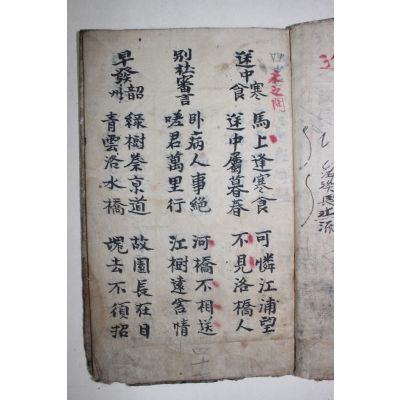 宋之問
途中寒食
馬上逢寒食 可憐江浦望
途中屬暮春 不見洛橋人
別杜審言
卧病人事絶 河橋不相送
嗟君萬里行 江樹遠含情
早發韶州
綠樹榮京道 故園長在目
青雲洛水橋 魂去不須招
四十